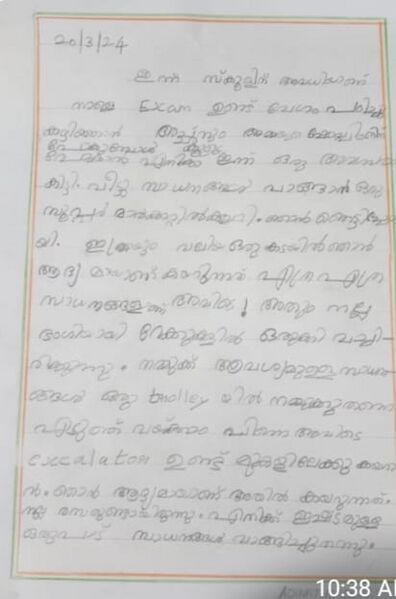 20/3/24
ഇന്ന് സ്കൂളിന് അവധിയാണ്
നാളെ Exam ഉണ്ട് വേഗം പഠിച്ചു
അച്ഛനും
എനിക്കു ഇന്ന് ഒരു
കിട്ടി. വീട്ടു സാധനങ്ങൾ വാങ്ങാൻ ഒരു
സൂപ്പർ മാർക്കറ്റിൽ കയറി. ഞാൻ ഞെട്ടിപ്പോ
യി. ഇത്രയും വലിയ ഒരു കടയിൽ ഞാൻ
ആദ്യമായാണ് കയറുന്നത് എത്ര എത്ര
സാധനങ്ങളാണ് അവിടെ! അതും നല്ല
ഭംഗിയായി റേക്കുകളിൽ ഒതുക്കി വച്ചി-
രിക്കുന്നു. നമുക്ക് ആവശ്യമുള്ള സാധന
ങ്ങൾ ഒരു tholley യിൽ നമുക്കു തന്നെ
എടുത്ത് വയ്ക്കാം പിന്നെ അവിടെ
esccalaton ഉണ്ട് മുകളിലേക്കു കയറാ
ൻ. ഞാൻ ആദ്യമായാണ് അതിൽ കയറുന്നത്.
നല്ല രസമുണ്ടായിരുന്നു. എനിക്ക് ഇഷ്ടമുള്ള
ഒരുപാട് സാധനങ്ങൾ വാങ്ങിച്ചുതന്നു.
10:38 A